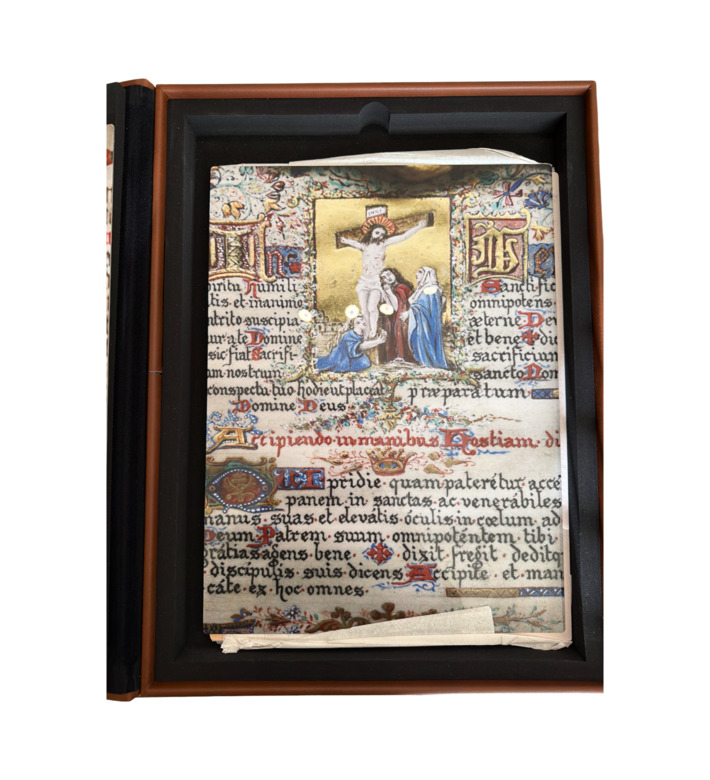 INRI
In
piritu humili
tis et animo
ntrito suscipia
ur a te Domine
sic fiat Sacrifi
am nostrum
conspectu tuo hodie ut placeat
Domine Deus
Ve
Sanctific
omnipotens
æterne De
et bene ✠ dic
sacrificium
sancto Nom
præparatum
Accipiendo in manibus Hostiam di
pridie quam pateretur acce
panem in sanctas ac venerábiles
manus suas et elevátis óculis in cœlum ad
Deum Patrem suum omnipoténtem tibi
grátias agens bene ✠ dixit fregit deditq
discípulis suis dicens Accípite et man
cáte ex hoc omnes